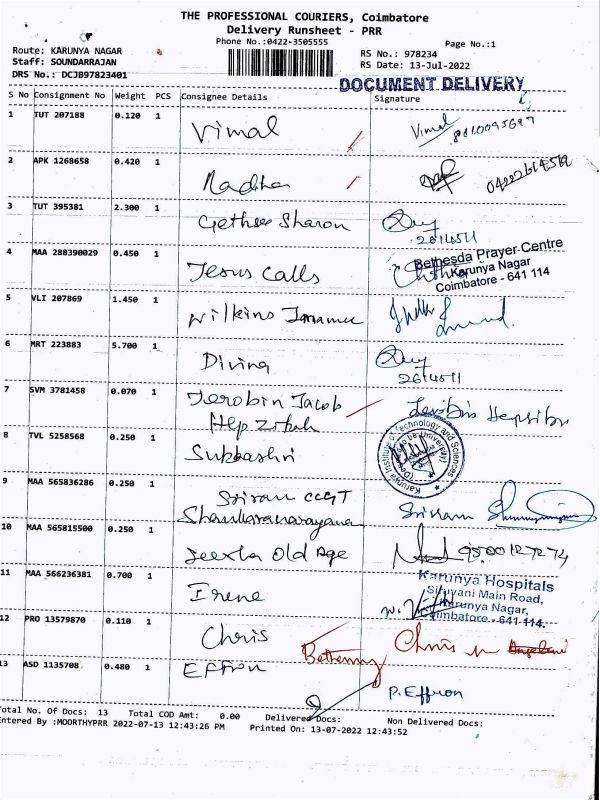 THE PROFESSIONAL COURIERS, Coimbatore
Delivery Runsheet - PRR
Phone No.:0422-3505555
Page No.:1
Route: KARUNYA NAGAR
RS No.: 978234
Staff: SOUNDARRAJAN
RS Date: 13-Jul-2022
DRS No.: DCJB97823401
DOCUMENT DELIVERY
S No Consignment No Weight PCS Consignee Details Signature
1 TUT 207188 0.120 1 Vimal Vimal
2 APK 1268658 0.420 1
3 TUT 395381 2.300 1 Sharon
2614511
4 MAA 288390029 0.450 1 Jesus Calls
Bethesda Prayer Centre
Karunya Nagar
Coimbatore - 641 114
5 VLI 207869 1.450 1 Wilkins
6 MRT 223883 5.700 1 Divina
2614511
7 SVM 3781458 0.070 1 Jerobin Jacob
8 TVL 5258568 0.250 1 Subbashri
Karunya Institute of Technology and Sciences
(Deemed to be University)
9 MAA 565836286 0.250 1 Sriram CCGT Sriram
Shankaranarayana
10 MAA 565815500 0.250 1 Old Age 9500127274
11 MAA 566236381 0.700 1 Irene
Karunya Hospitals
Siruvani Main Road,
Karunya Nagar,
Coimbatore - 641-114.
12 PRO 13579870 0.110 1 Chris Chris
13 ASD 1135708 0.480 1 Effron P. Effron
Total No. Of Docs: 13 Total COD Amt: 0.00 Delivered Docs: Non Delivered Docs:
Entered By :MOORTHYPRR 2022-07-13 12:43:26 PM Printed On: 13-07-2022 12:43:52